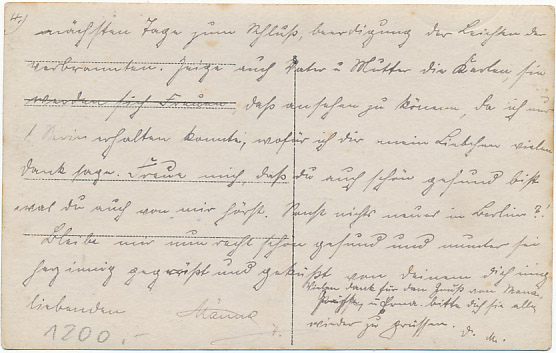 4.)
nächsten Tage zum Schluß, beerdigung der Leichen de
verbrannten. Zeige auch Vater u Mutter die Karten, sie
werden sich freuen, daß ansehen zu können, da ich nur
1 Serie erhalten konnte, wofür ich dir mein Liebchen vielen
dank sage. Freue mich, daß du auch schön gesund bist
was du auch von mir hörst. Sonst nichts neues in Berlin?!
Bleibe mir nun recht schön gesund und munter sei
herzinnig gegrüßt und geküßt von deinem dich innig
liebenden
Vielen dank für den Gruß von
u bitte dich sie alle
wieder zu grüssen. d. M.
1200.-